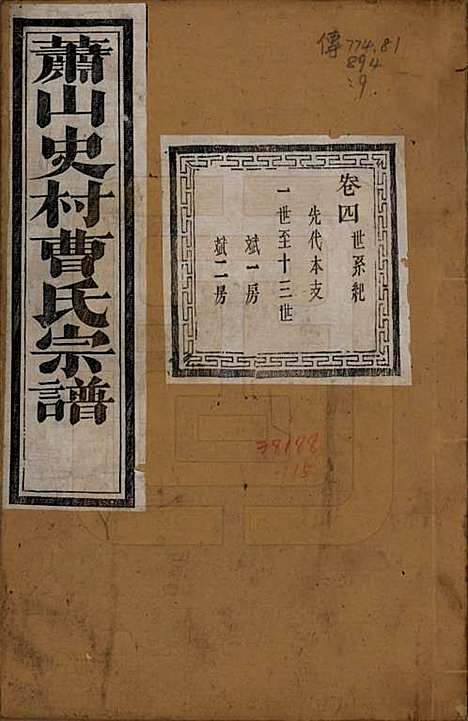 蕭山史村曹氏宗譜
卷四世系紀
先代本支
一世至十三世
斌一房
斌二房
傳774.81
894
:9